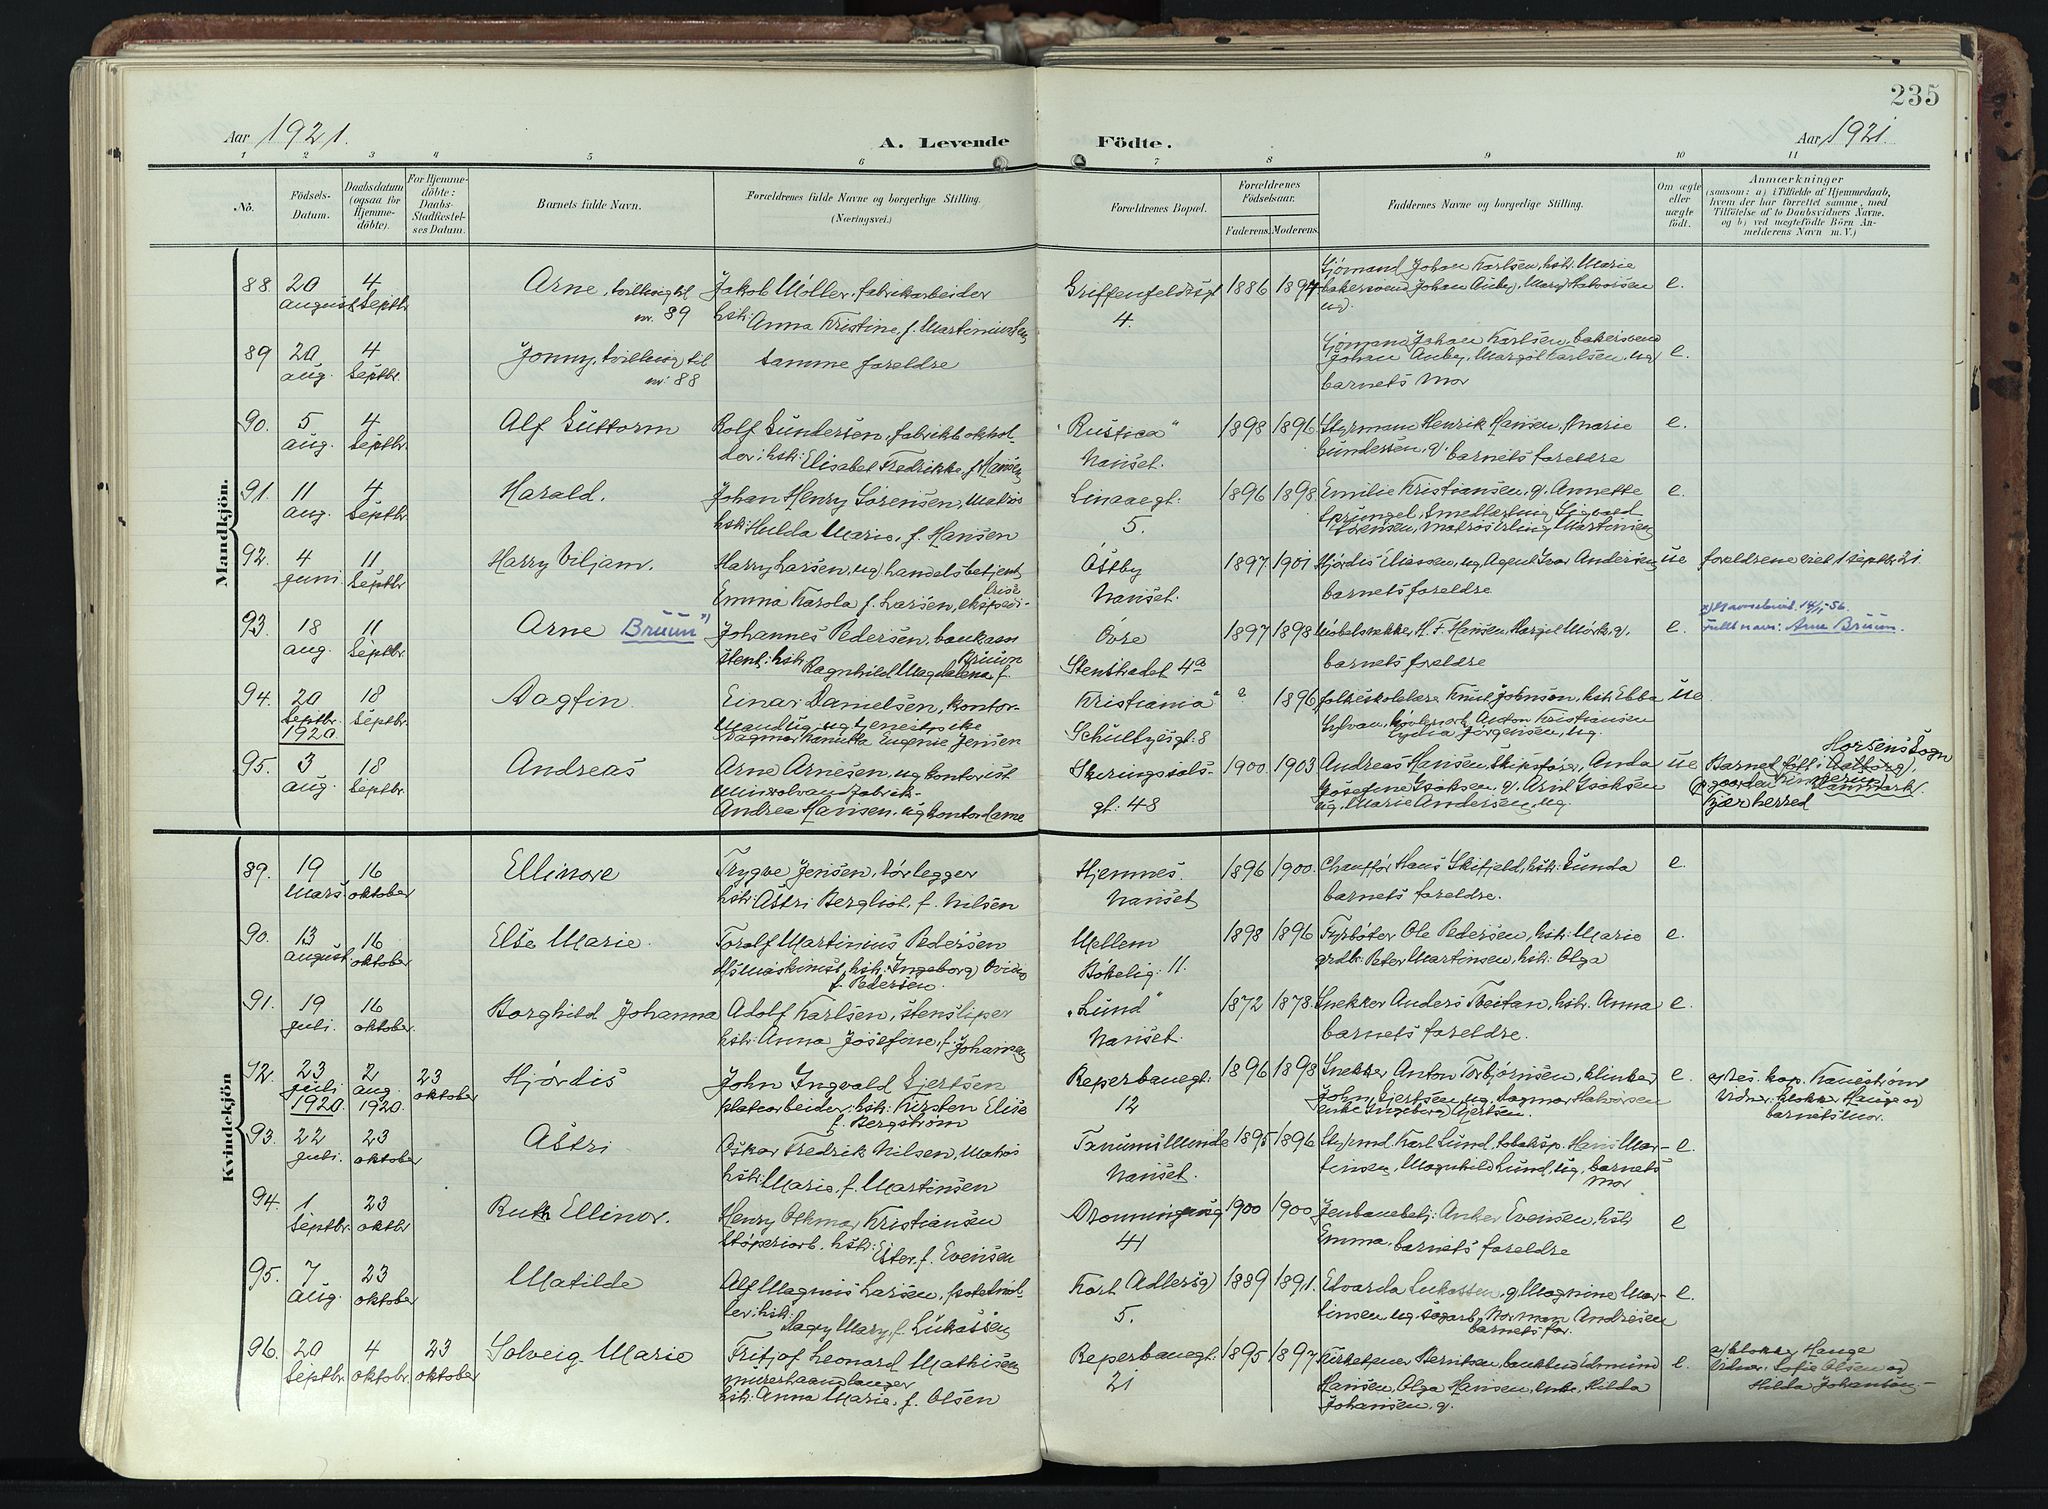 235
Aar 1921.
A. Levende Födte.
Aar 1921.
1 2 3 4 5 6 7 8 9 10 11
No.
Födsels-Datum.
Daabsdatum (ogsaa for Hjemme-döbte).
For Hjemme-döbte: Daabs-Stadfæstel-ses Datum.
Barnets fulde Navn.
Forældrenes fulde Navne og borgerlige Stilling.
(Næringsvei.)
Forældrenes Bopæl.
Forældrenes Födselsaar.
Faderens. Moderens.
Faddernes Navne og borgerlige Stilling.
Om ægte eller uægte födt.
Anmærkninger
(saasom: a) i Tilfælde af Hjemmedaab,
hvem der har forrettet samme, med
Tilföielse af to Daabsvidners Navne.
og b) ved uægtefödte Börn An-
melderens Navn m. V.)
Mandkjön.
88. 20 august 4 Septbr. Arne, tvilling til nr. 89
Jakob Möller, fabrikarbeider
hstr: Anna Kristine, f. Martinius
Griffenfeldtsgt 4. 1886 1894
Sjömand Johan Karlsen, hstr. Marie
bakersvend Johan Auby, Mary Halvorsen
ug. e.
89 20 aug. 4 Septbr. Jonny, tvilling til nr. 88
samme foreldre
Sjömand Johan Karlsen, bakersvend
Johan Auby, Margot Karlsen, ug
barnets mor e.
90. 5 aug. 4 Septbr. Alf Guttorm
Rolf Gundersen, fabrikbokhol-
der, hstr: Elisabet Fredrikke, f. Hansen
"Rustica" Nanset. 1898 1896
Styrmann Henrik Hansen, Marie
Gundersen, g. barnets foreldre e.
91. 11 aug. 4 Septbr. Harald.
Johan Henry Sörensen, Matros
hstr: Hulda Marie, f. Hansen
Linaaegt. 5. 1896 1898
Emilie Kristiansen, g. Annette
Sprungel, Smedlærling Sigvald
Sörensen, Matros Erling Martinsen e.
92. 4 juni 11 Septbr. Harry Viljam.
Harry Larsen, ug handelsbetjent
Emma Karola f. Larsen, ekspedi-
trise
Östby Nanset. 1897 1901
Hjördis Eliassen, ug, Agent Ivar Andersen
barnets foreldre ue foreldrene viet 1 septbr 21.
93. 18 aug. 11 Septbr. Arne Bruun x)
Johannes Pedersen, bankass
stent: hstr. Ragnhild Magdalena f. Bruun
Övre Stenstrædet 4a 1897 1898
Möbelsnekker H. F. Hansen, Margit Mörk, g.
barnets foreldre e.
x) Navnebevis. 14/1-56.
fullt navn: Arne Bruun.
94. 20 Septbr. 1920. 18 Septbr. Dagfin.
Einar Danielsen, kontor-
mand ug, ug tjenestpike
Dagmar Kamilla Eugenie Jensen
Kristiania Schultzesgt: 8 ? 1896
folkeskolelære Knut Johnson, hstr. Ebba
Sylvan, Anton Kristiansen
Lydia Jörgensen, ug. ue
95. 3 aug. 18 Septbr. Andreas
Arne Arnesen, ug kontorist
Mineralvandfabrik-
Andrea Hansen, ug kontordame
Skiringssals-gt: 48 1900 1903
Andreas Hansen, skipsförer, Anda
Josefine Isaksen, g. Arnt Isaksen
ug, Marie Andersen, ug. ue
Horsens Sogn
Barnet født i Aalborg,
(paa gaarden Danmark).
Kjær herred
Kvindekjön
89. 19 Mars 16 oktober Ellinore
Trygve Jensen, rörlegger
hstr: Astri Bergliot, f. Nilsen
Hjemnes. Nanset 1896 1900.
Chaufför Hans Skifjeld, hstr. Gunda
barnets foreldre. e.
90. 13 august. 16 oktober Else Marie.
Torolf Martinius Pedersen
hstr: Ingeborg
f. Pedersen.
Mellem Bökelig: 11. 1898 1896
Fyrböter Ole Pedersen, hstr: Marie
grdbr. Peter Martinsen, hstr: Olga e.
91. 19 juli. 16 oktober. Borghild Johanna
Adolf Karlsen, stensliper
hstr: Anna Josefine, f. Johansen
"Lund" Nanset. 1872 1878.
Snekker Anders Treitan, hstr. Anna
barnets foreldre. e.
92. 23 juli 1920 2 aug. 1920. 23 oktober Hjördis
John Ingvald Gjertsen
platearbeider, hstr: Kirsten Elise
f. Bergström
Reperbanegt: 12 1896 1898
Snekker Anton Torbjörnsen, klinker
John Gjertsen, ug. Dagmar Halvorsen
enke Ingeborg Gjertsen. e.
a) res. kap. Kaneström
Vidner: klokker Hauge og
barnets mor.
93. 22 juli. 23 oktober. Astri
Oskar Fredrik Nilsen, Matros
hstr: Marie, f. Martinsen
Tanums Minde Nanset. 1895 1896
Styrmd. Karl Lund, tobaksp. Hans Mar-
tinsen, Magnhild Lund, ug, barnets
mor e.
94. 1 Septbr. 23 oktbr Ruth Ellinor.
Henry Othmar Kristiansen
Støperiarb, hstr: Ester, f. Evensen
Dronningensg 41 1900 1900
Jernbanebetj: Anker Evensen, hstr
Emma, barnets foreldre e
95. 7 Aug. 23 oktober Matilde
Alf Magnus Larsen,
hstr: Dagny Mary, f. Lukassen
Kort Adlersg 5. 1889 1891.
Edvarda Lukassen, g, Magnine Mar-
tinsen, ug. sagarb. Norman Andresen
barnets far. e.
96. 20 Septbr. 4 oktobr. 23 oktober Solveig Marie
Fritjof Leonard Mathisen
murerhaandlanger
hstr: Anna Marie, f. Olsen
Reperbanegt. 21 1895 1897
Kirketjener Berntsen,
Hansen, Olga Hansen, enke, Hilda
Johansen, g. e.
a) klokker Hauge
Vidner: Sofie Olsen og
Hilda Johansen